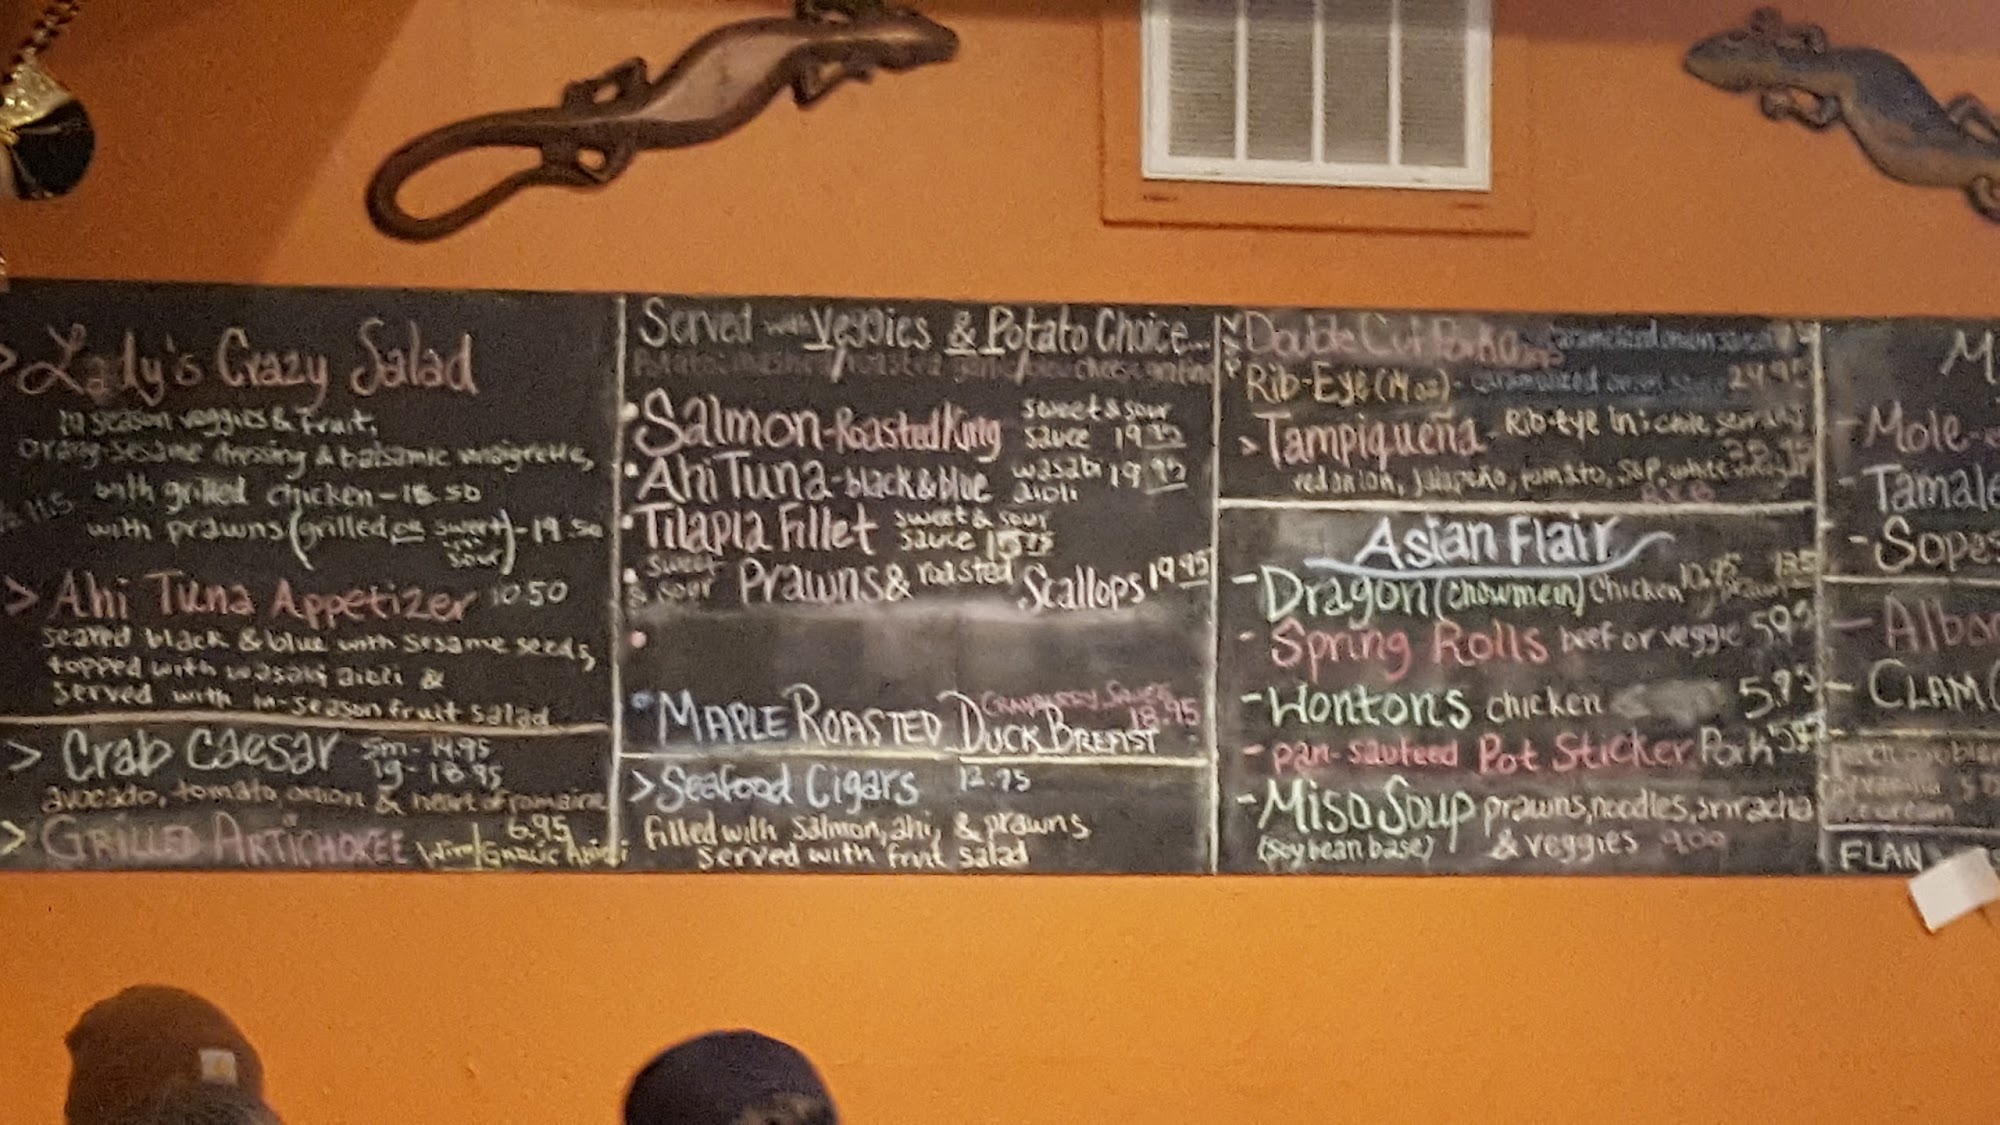 > Lady's Crazy Salad
in season veggies & fruit,
orange-sesame dressing & balsamic
with grilled chicken - 18.50
with prawns (grilled or sweet and sour) - 19.50
> Ahi Tuna Appetizer 10.50
seared black & blue with sesame seeds,
topped with wasabi aioli &
served with in-season fruit salad
> Crab Caesar sm - 14.95
lg - 18.95
avocado, tomato, onion & heart of romaine
> GRILLED ARTICHOKEE 6.95
Served with Veggies & Potato Choice...
• Salmon - Roasted King sweet & sour
sauce 19.95
• Ahi Tuna - black & blue wasabi 19.95
aioli
• Tilapia Fillet sweet & sour
sauce
• sweet & sour Prawns & roasted Scallops 19.95
• MAPLE ROASTED DUCK BREAST CRANBERRY SAUCE
18.95
> Seafood Cigars 12.95
filled with salmon, ahi, & prawns
served with fruit salad
Double Cut Pork
Rib-Eye (14oz) - caramelized onion 24.95
> Tampiqueña - Rib-eye in
red onion, jalapeño, tomato, white
Asian Flair
- Dragon (chowmein) Chicken 10.95
- Spring Rolls beef or veggie 5.95
- Wontons chicken 5.95
- pan-sauteed Pot Sticker Pork 5.95
- Miso Soup prawns, noodles, sriracha
(soy bean base) & veggies 9.00
- Mole
- Tamale
- Sopes
- CLAM
FLAN